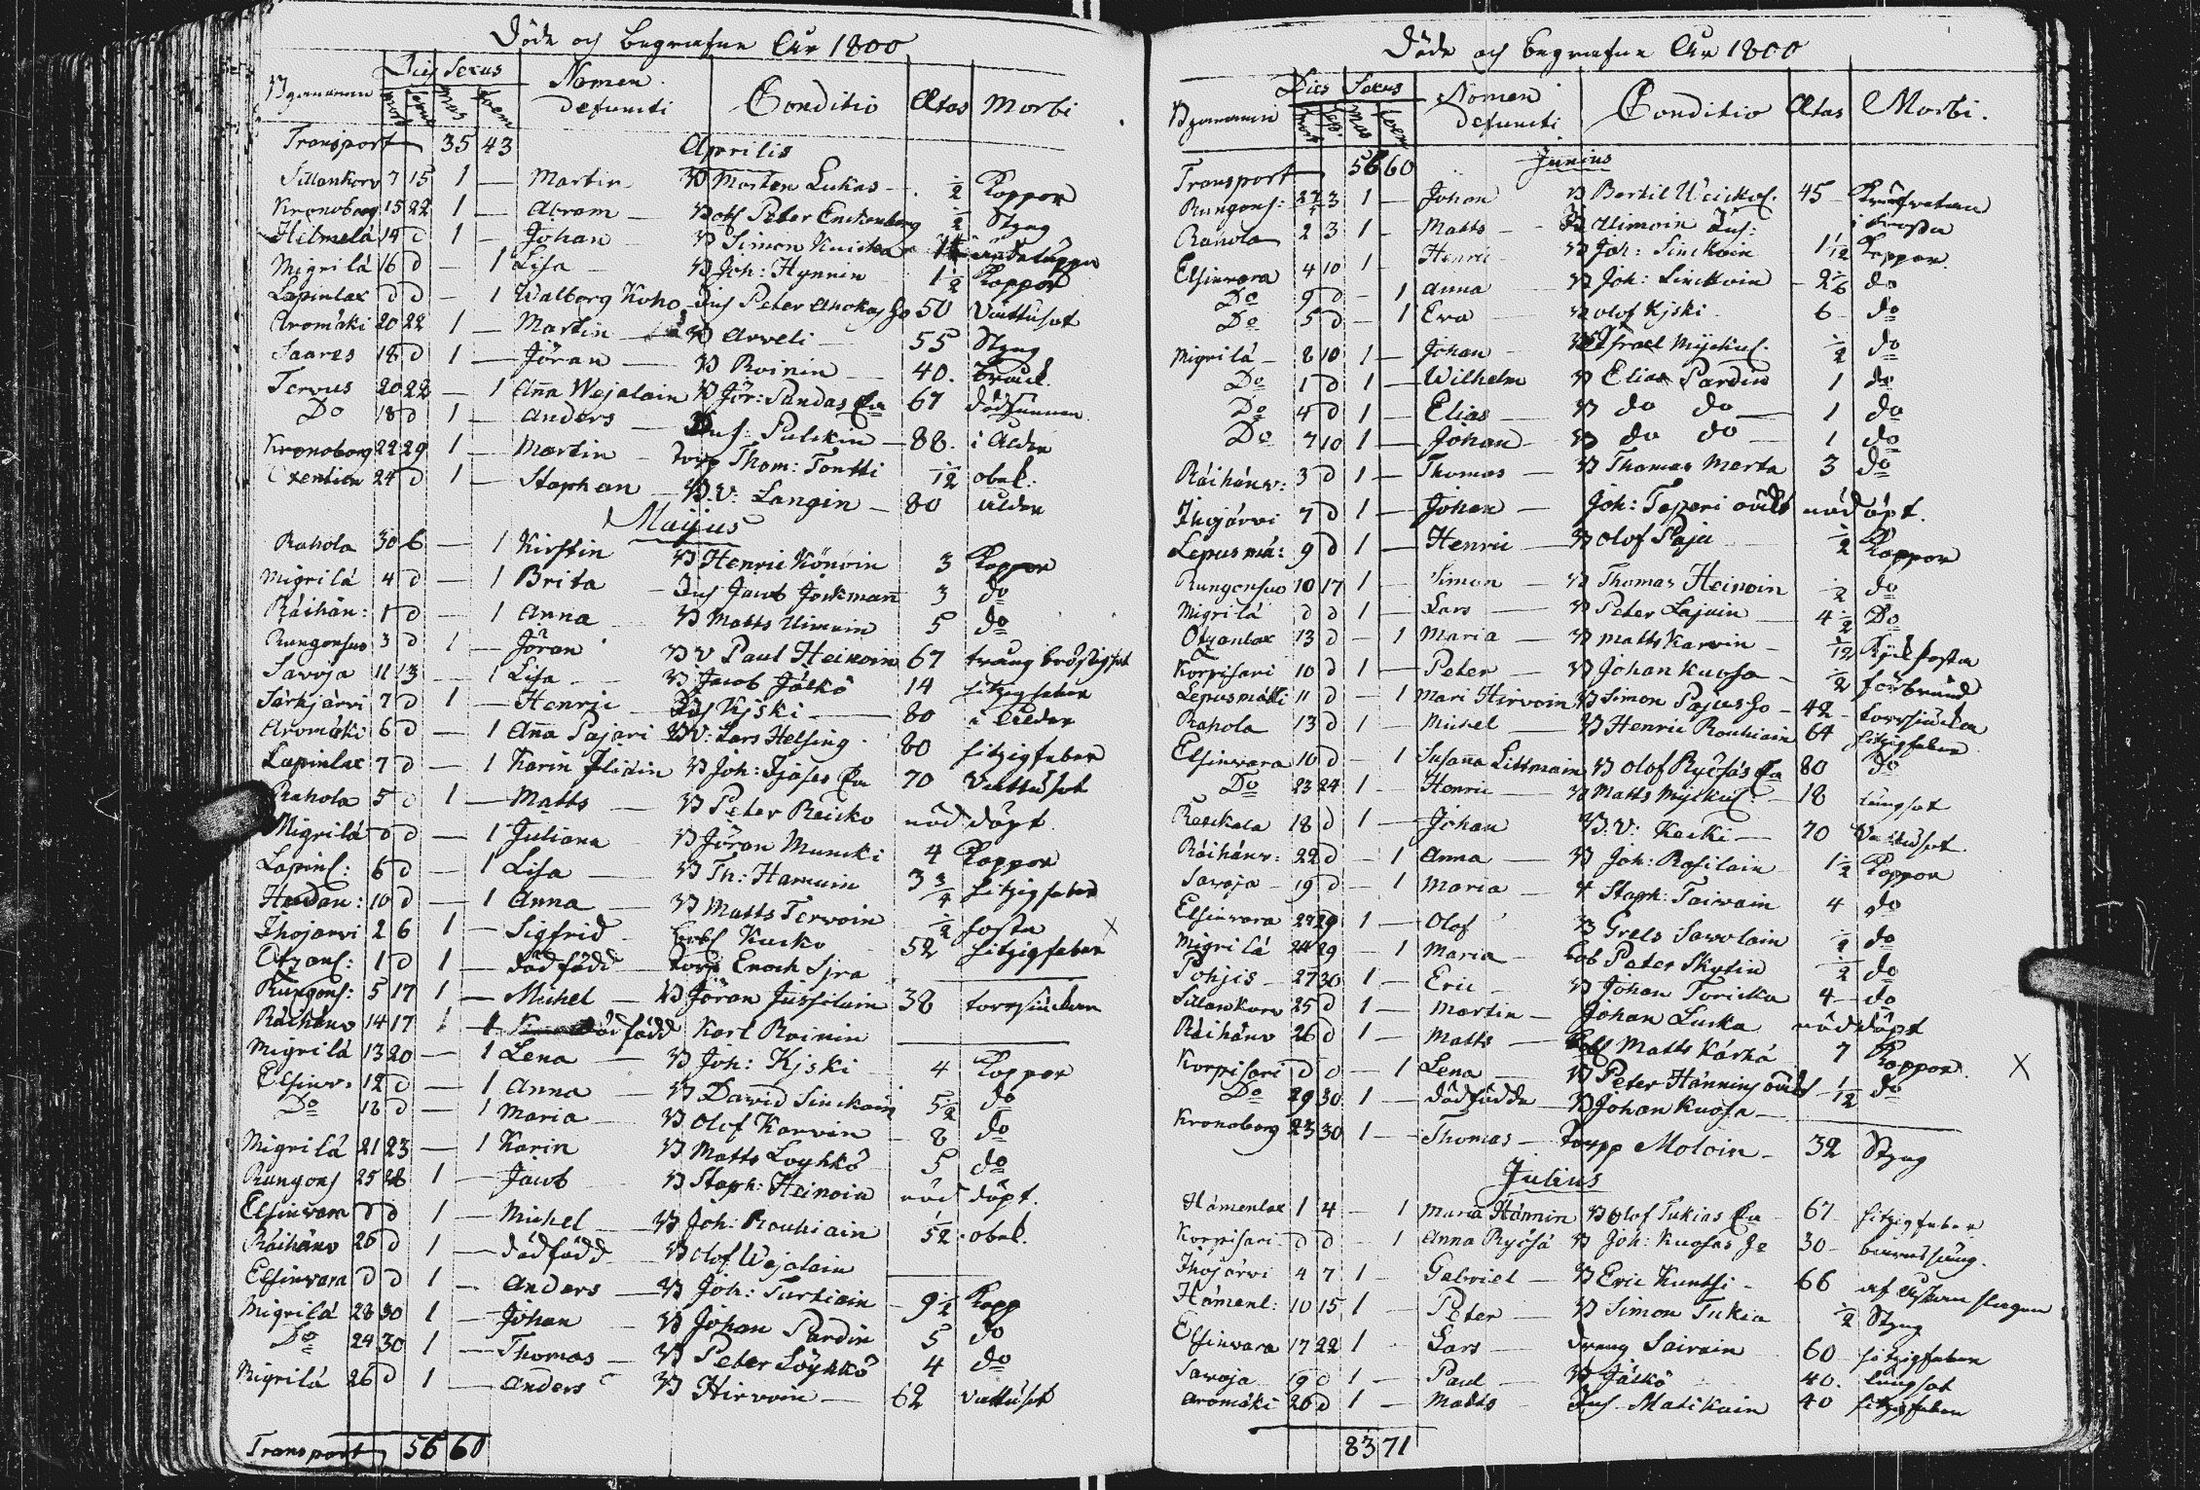 Döde och begrafne År 1800
Dies Sexus
Nomen defuncti Conditio Ætas Morbi
Transport 35 43
Aprilis
Sillankorv 7 15 1 — Martin B Morten Lukas ½ Koppor
Kronoborg 15 22 1 — Abram — Peter Enckenberg ½ Styng
Hitmelä 14 d 1 — Johan — B Simon
Migrilä 16 d — 1 Lisa — B Joh: Hynnin 1½ Koppor
Lapinlax d d — 1 Walborg Koho Peter 50 Vattusot
Aromäki 20 22 1 — Martin — B Arveli — 55 Styng
Saares 18 d 1 — Jöran — B Roinin — 40. bråck.
Tervus 20 22 — 1 Aña Wejalain B Jör: Sundas 67
Do 18 d 1 — Anders — Inh: Pulckin — 88. i ålder
Kronoborg 22 29 1 — Martin — Torp Thom: Tontti 1/12 obek:
Exentien 24 d 1 — Staphan — B.V: Langin — 80 ålder
Majus
Rahola 30 6 — 1 Kirstin B Henric Könöin 3 Koppor
Migrilä 4 d — 1 Brita — Inh Jacob Jöckmañ 3 do
Räihän: 1 d — 1 Anna — B Matts Uimoin 5 do
Rungonsuo 3 d 1 — Jöran B v Paul Heinoin 67 trång bröstighet
Savoja 11 13 — 1 Lisa — B Jacob Jälkö 14 hitzigfeber
Särkjärvi 7 d 1 — Henric — Inh Kjski — 80 i ålder
Aromäki 6 d — 1 Aña Pajari B V: Lars Helsing 80 hitzigfeber
Lapinlax 7 d — 1 Karin B Joh: 70 Vattusot
Rahola 5 d 1 — Matts — B Peter Reicko nöd döpt
Migrilä d d — 1 Juliana — B Jöran Muncki 4 Koppor
Lapinl: 6 d — 1 Lisa — B Th: Hamuin 3 ¾ hitzigfeber
10 d — 1 Anna — B Matts Tervoin ½ hosta
Ihojarvi 2 6 1 — Sigfrid — Kucko 52 hitzigfeber
Otzanl: 1 d 1 — dödfödd — Torp Enoch Sjra
Rungons: 5 17 1 — Michel — B Jöran Jussilain 38 torrsiukan
Räihänv 14 17 1 — dödfödd Karl Roinin
Migrilä 13 20 — 1 Lena — B Joh: Kjski 4 Koppor
Elsinv: 12 d — 1 Anna — B David Sinckoin 5½ do
Do 18 d — 1 Maria — B Olof Karvin 8 do
Migrilä 21 23 — 1 Karin B Matts Loyhkö 5 do
Rungons 25 28 1 — Jacob — B Staph: Heinoin nöd döpt.
Elsinvara d d 1 — Michel — B Joh: Rouhiain 1/52 obek.
Räihänv 26 d 1 — dödfödd — B Olof Wejalain
Elsinvara d d 1 — Anders — B Joh: Turkiain 9½ Kopp
Migrilä 28 30 1 — Johan — B Johan Pardin 5 do
Do 24 30 1 — Thomas — B Peter Löyhkö 4 do
Migrilä 26 d 1 — Anders B Hirvoin — 62 vattusot
Transport 56 60
Döde och begrafne År 1800
Dies Sexus
Nomen defuncti Conditio Ætas Morbi.
Transport 56 60
Junius
Rungons: 3 1 — Johan B Bertil 45
Rahola 2 3 1 — Matts — Uimoin Inh:
Elsinvara 4 10 1 — Henric — B Joh: Sinckoin 1 1/12 Koppor.
Do 9 d — 1 Anna — B Joh: Sinckoin — do
Do 5 d — 1 Eva — B Olof Kjski — 6 — do
Migrilä — 8 10 1 — Johan — B Israel ½ do
Do 1 d 1 — Wilhelm B Elias Pardin 1 do
Do 4 d 1 — Elias — B do do — 1 do
Do 7 10 1 — Johan — B do do — 1 do
Räihänv: 3 d 1 — Thomas — B Thomas Marta 3 do
Ihojärvi 7 d 1 — Johan — Joh: Taperi nöd döpt.
Lepusmä: 9 d 1 — Henric — B Olof Paju ½ Koppor
Rungonsuo 10 17 1 — Simon — B Thomas Heinoin ½ do
Migrilä d d 1 — Lars — B Peter Lajuin 4½ Do
Otzanlax 13 d — 1 Maria — B Matts Karvin — 1/12 Kjkhosta
Korpisari 10 d 1 — Peter — B Johan Kuosa — ½ förbränd
Lepusmäki 11 d — 1 Mari Hirvoin B Simon 42 torrsiukan
Rahola 13 d 1 — Michel — B Henric Rouhiain 64 hitzigfeber
Elsinvara 10 d — 1 Susaña Littmain B Olof 80 do
Do 23 24 1 — Henric — B Matts 18 lungsot
18 d 1 — Johan B.V: Kaicki — 70 Vattusot.
Räihänv: 22 d — 1 Anna — B Joh: Rasilain 1½ Koppor
Savoja — 19 d — 1 Maria — Staph: Toivain 4 do
Elsinvara 27 29 1 — Olof — B Grels Savolain ½ do
Migrilä 24 29 — 1 Maria — Peter Skytin ½ do
Pohjis — 27 30 1 — Eric — B Johan Toricka 4 — do
Sillankorv 25 d 1 — Martin — Johan Lucka nöd döpt
Räihänv 26 d 1 — Matts — Matts Kärkä 7 Koppor.
Korpisari d d — 1 Lena — B Peter 1/12 do
Do 29 30 1 — dödfödde — B Johan Kuosa —
Kronoborg 23 30 1 — Thomas — Torpp Moloin — 32 Styng
Julius
Hämenlax 1 4 — 1 Maria Hännin B Olof Tukias 67 — hitzigfeber
Korpisari — d d — 1 Anna B Joh: Kuosas 30 — barnsäng.
Ihojärvi 4 7 1 — Gabriel — B Eric Kuntsi — 66
Hämenl: 10 15 1 — Peter — B Simon Tukia ½ Styng
Elsinvara 17 22 1 — Lars — dräng Sairain 60 — hitzigfeber
Savoja 19 d 1 — Paul — B Jälkö 40. lungsot
Aromäki 26 d 1 — Matts — Inh. Matikain 40 hitzigfeber
83 71